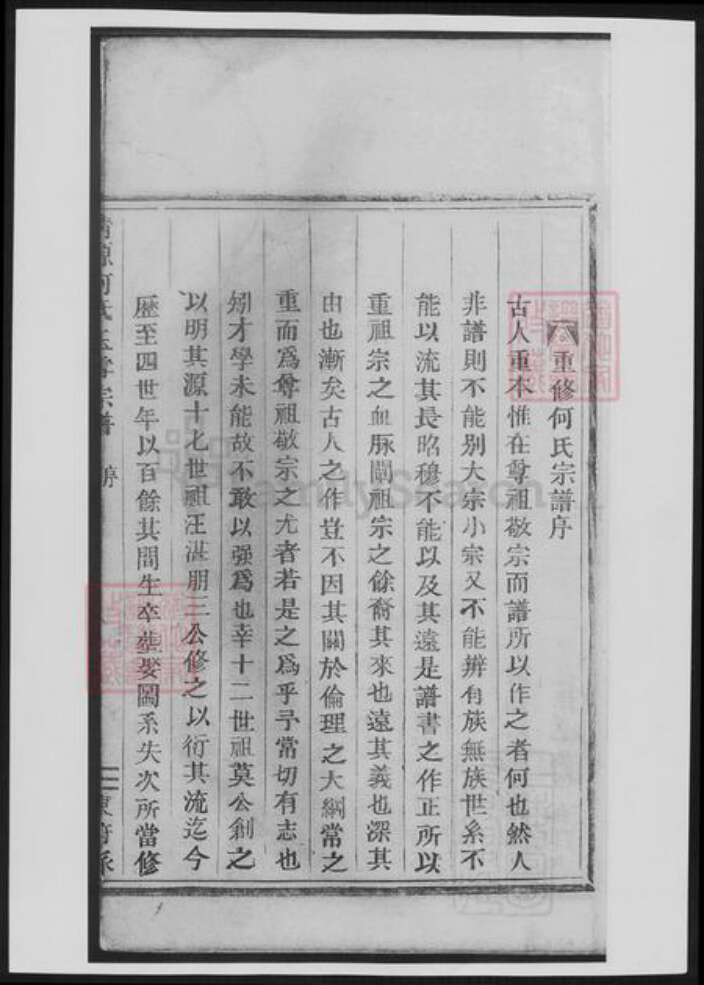 六重修何氏宗譜序
古人重本惟在尊祖敬宗而譜所以作之者何也然人
非譜則不能別大宗小宗又不能辨有族無族世系不
能以流其長昭穆不能以及其遠是譜書之作正所以
重祖宗之血脉闡祖宗之餘裔其來也遠其義也深其
由也漸矣古人之作豈不因其關於倫理之大綱常之
重而爲尊祖敬宗之尤者若是之爲乎予當切有志也
矧才學未能故不敢以强爲也幸十二世祖莫公創之
以明其源十七世祖汪湛朋三公修之以衍其流迄今
歷至四世年以百餘其間生卒葬娶圖系失次所當修
何氏 宗譜 序 二
FamilySearch